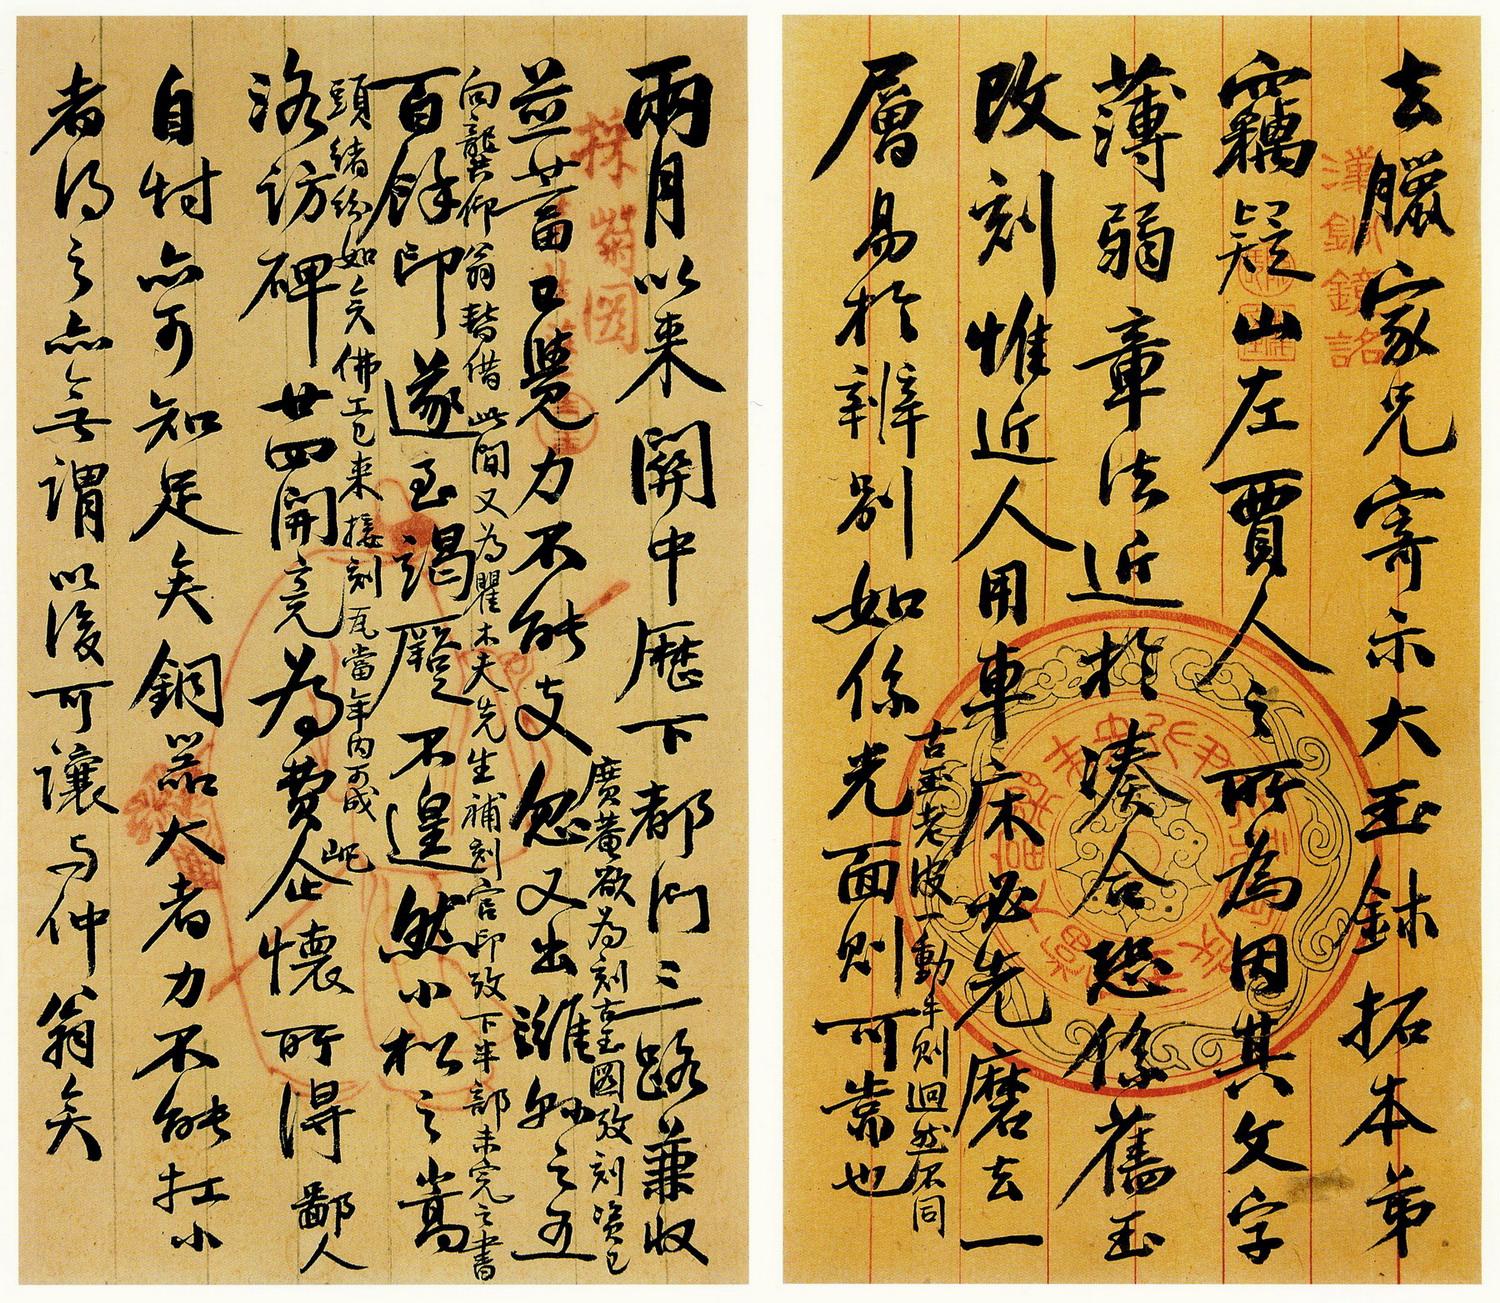 去臘家兄寄示大玉鉥拓本弟
竊疑山左賈人之所為因其文字
薄弱章法近於湊合恐係舊玉
改刻惟近人用車床必先磨去一
層易於辨別如係
古玉老波一動手則迥然不同
光面則可靠也
漢銅鏡銘
兩月以來關中歷下都門三路兼收
廣菴欲為刻古玉圖攷刻資已
並蓄已覺力不能支忽又出濰縣之五
向龔仰翁暫借此間又為瞿木夫先生補刻官印攷下半部未完之書
百餘印遂至竭蹶不遑然小松之嵩
頭緒紛如矣佛工已來接刻瓦當年內可成
洛訪碑廿四開竟為費屺懷所得鄙人
自忖亦可知足矣銅器大者力不能扛小
者得之亦無謂以後可讓与仲翁矣
採菊圖